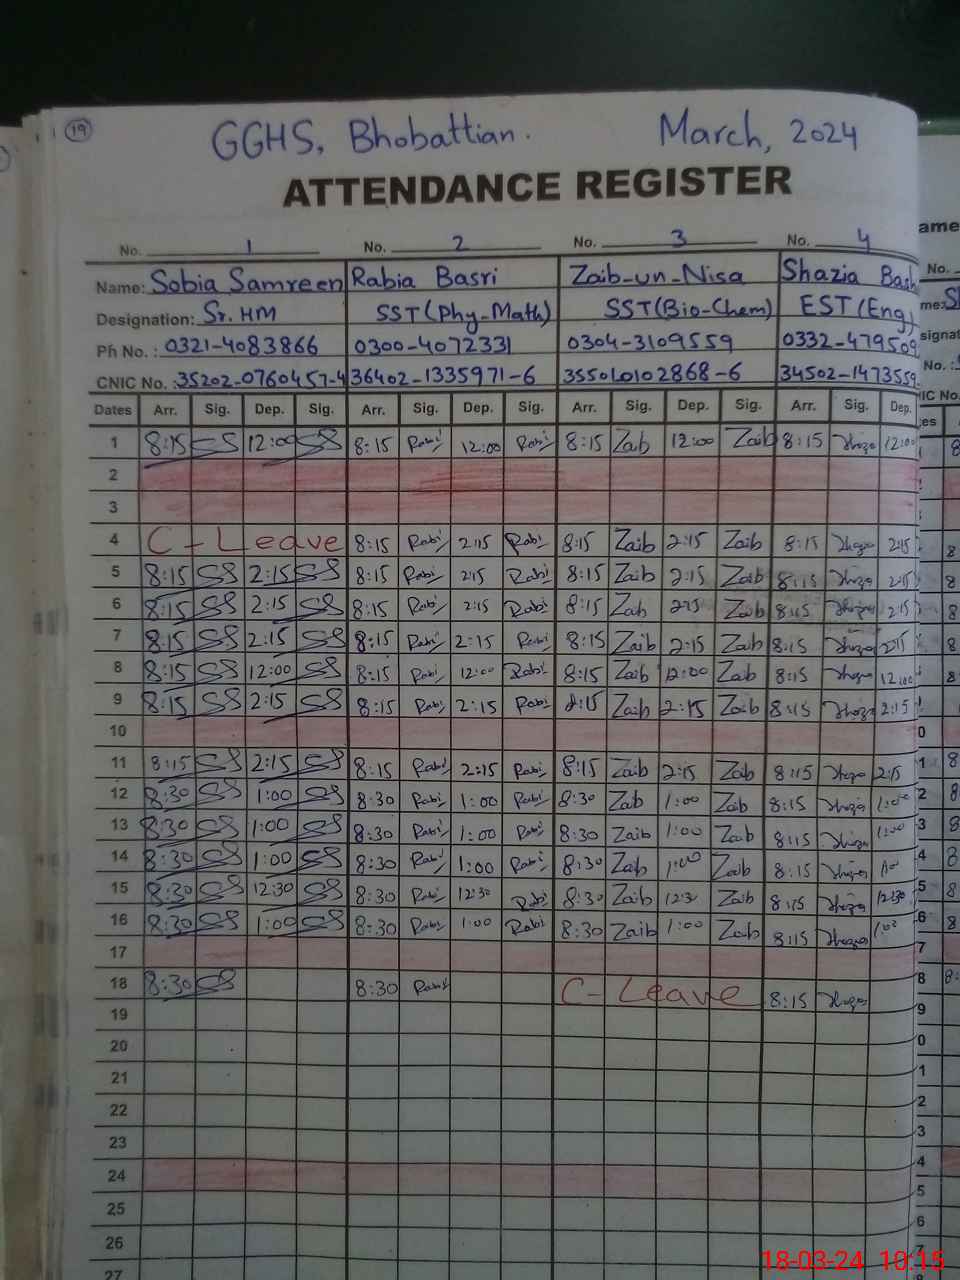 19
GGHS, Bhobattian. March, 2024
ATTENDANCE REGISTER
No. 1 No. 2 No. 3 No. 4
Name: Sobia Samreen Rabia Basri Zaib-un-Nisa Shazia Bash
Designation: Sr. HM SST(Phy-Math) SST(Bio-Chem) EST (Eng)
Ph No. : 0321-4083866 0300-4072331 0304-3109559 0332-479509
CNIC No. : 35202-0760457-4 36402-1335971-6 34502-1473559
Dates Arr. Sig. Dep. Sig. Arr. Sig. Dep. Sig. Arr. Sig. Dep. Sig. Arr. Sig. Dep.
1 8:15 SS 12:00 SS 8:15 Rabi 12:00 Rabi 8:15 Zab 12:00 Zaib 8:15 12:00
2
3
4 C-Leave 8:15 Rabi 2:15 Rabi 8:15 Zaib 2:15 Zaib 8:15 2:15
5 8:15 SS 2:15 SS 8:15 Rabi 2:15 Rabi 8:15 Zaib 2:15 Zaib 8:15 2:15
6 8:15 SS 2:15 SS 8:15 Rabi 2:15 Rabi 8:15 Zab 2:15 Zab 8:15 2:15
7 8:15 SS 2:15 SS 8:15 Rabi 2:15 Rabi 8:15 Zaib 2:15 Zaib 8:15 2:15
8 8:15 SS 12:00 SS 8:15 Rabi 12:00 Rabi 8:15 Zaib 12:00 Zaib 8:15 12:00
9 8:15 SS 2:15 SS 8:15 Rabi 2:15 Rabi 8:15 Zaib 2:15 Zaib 8:15 2:15
10
11 8:15 SS 2:15 SS 8:15 Rabi 2:15 Rabi 8:15 Zaib 2:15 Zab 8:15 2:15
12 8:30 SS 1:00 SS 8:30 Rabi 1:00 Rabi 8:30 Zab 1:00 Zaib 8:15 1:00
13 8:30 SS 1:00 SS 8:30 Rabi 1:00 Rabi 8:30 Zaib 1:00 Zab 8:15 1:00
14 8:30 SS 1:00 SS 8:30 Rabi 1:00 Rabi 8:30 Zab 1:00 Zaib 8:15
15 8:30 SS 12:30 SS 8:30 Rabi 12:30 Rabi 8:30 Zaib Zaib 8:15 12:30
16 8:30 SS 1:00 SS 8:30 Rabi 1:00 Rabi 8:30 Zaib 1:00 Zaib 8:15
17
18 8:30 SS 8:30 Rabi C-Leave 8:15
19
20
21
22
23
24
25
26
27
18-03-24 10:15